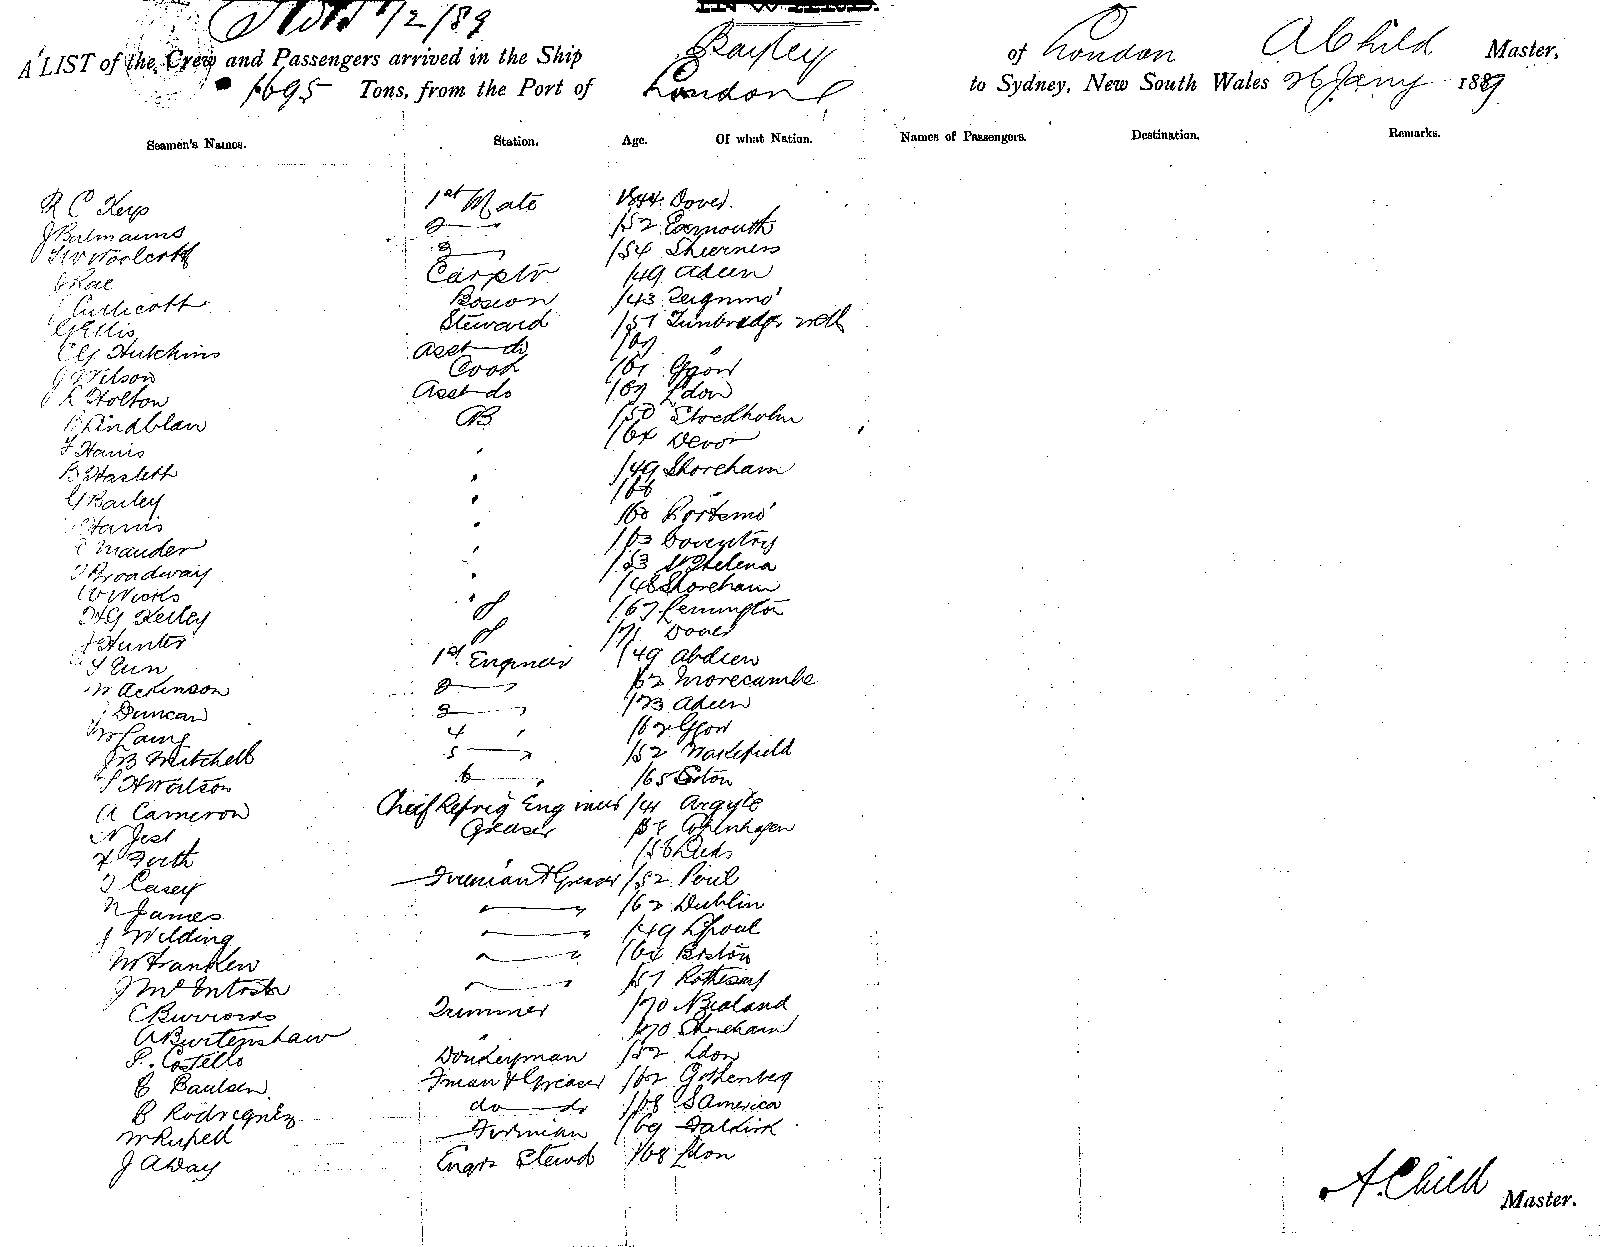 1/2/89
A LIST of the Crew and Passengers arrived in the Ship Bayley of London A Child Master,
1695 Tons, from the Port of London to Sydney, New South Wales 26 Jany 1889
Seamen's Names. Station. Age. Of what Nation. Names of Passengers. Destination. Remarks.
R C Keys 1st Mate 1844 Dover.
J Bulmanns 2 /52 Exmouth
Woolcott 3 /54 Sheerness
J Rae Carptr /49 Adeen
Cullicott Boson /43 Teignmo'
G Ellis Steward /51 Tunbridge well
C G Hutchins Asst do /69 "
J Wilson Cook /61 Ggow
R Holton Asst do /69 Ldon
Lindblan AB /50 Stockholm
F Harris " /64 Devon
B Haslett " /49 Shoreham
G Bailey " /66 "
Harris " /60 Portsmo'
C Mauder " /63 Coventry
J Broadway " /53 St Helena
W Wicks " /48 Shoreham
H G Kelley /67 Lemington
J Hunter /71 Dover
Gun 1st Engineer /49 Abdeen
W Ackinson 2 /62 Morecambe
J Duncan 3 Adeen
W Laing 4 " /62 Ggow
J B Mitchell 5 /52 Wakefield
S H Watson 6 /65
A Cameron Chief Refrig Engineer /41 Argyle
N Jest Greaser Copenhagen
Forth /58 Leeds
J Casey Fireman & Greaser /52 Poul
N James /62 Dublin
J Wilding /49 Lpool
M Franken /64 Boston
J McIntosh /57 Rothesay
C Burrows Trimmer /70 N Zealand
A Burtenshaw " /70 Shoreham
P. Costello Donkeyman /52 Ldon
C Paulsen Fman & Greaser /62 Gothenbeg
B Rodregnez do do /68 S America
W Russell Fireman /69 Falkirk
J A Day Engrs Stewd /68 Ldon
A. Child Master.